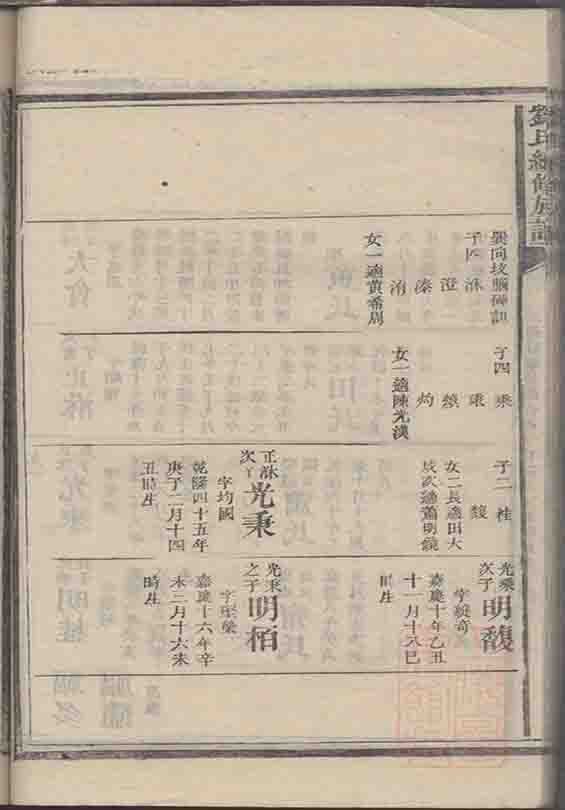 劉氏續修族譜
子四 洙
澄
溱
洧
女一適黃希周
子四 乘
秉
灼
女一適陳光漢
子二 桂
馥
女二長適田大
成次適蕭明鏡
正洙
次子
光秉
字均國
乾隆四十五年
庚子二月十四
丑時生
光乘
次子
明馥
嘉慶十年乙丑
十一月十八巳
時生
光秉
之子
明栢
嘉慶十六年辛
未三月十六未
時生